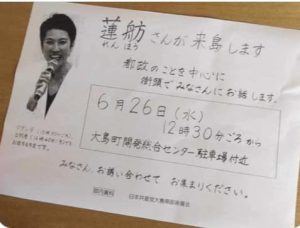 蓮舫さんが来島します
れんほう
都政のことを中心に
街頭でみなさんにお話します。
6月26日(水)
12時30分ごろから
大島町開発総合センター駐車場付近
みなさん、お誘い合わせて お集まりください。
日本共産党大島